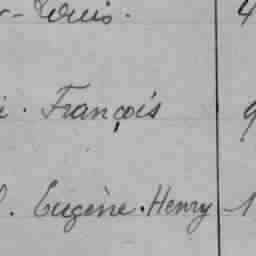 -Louis. 4
. François 9
. Eugène. Henry 1